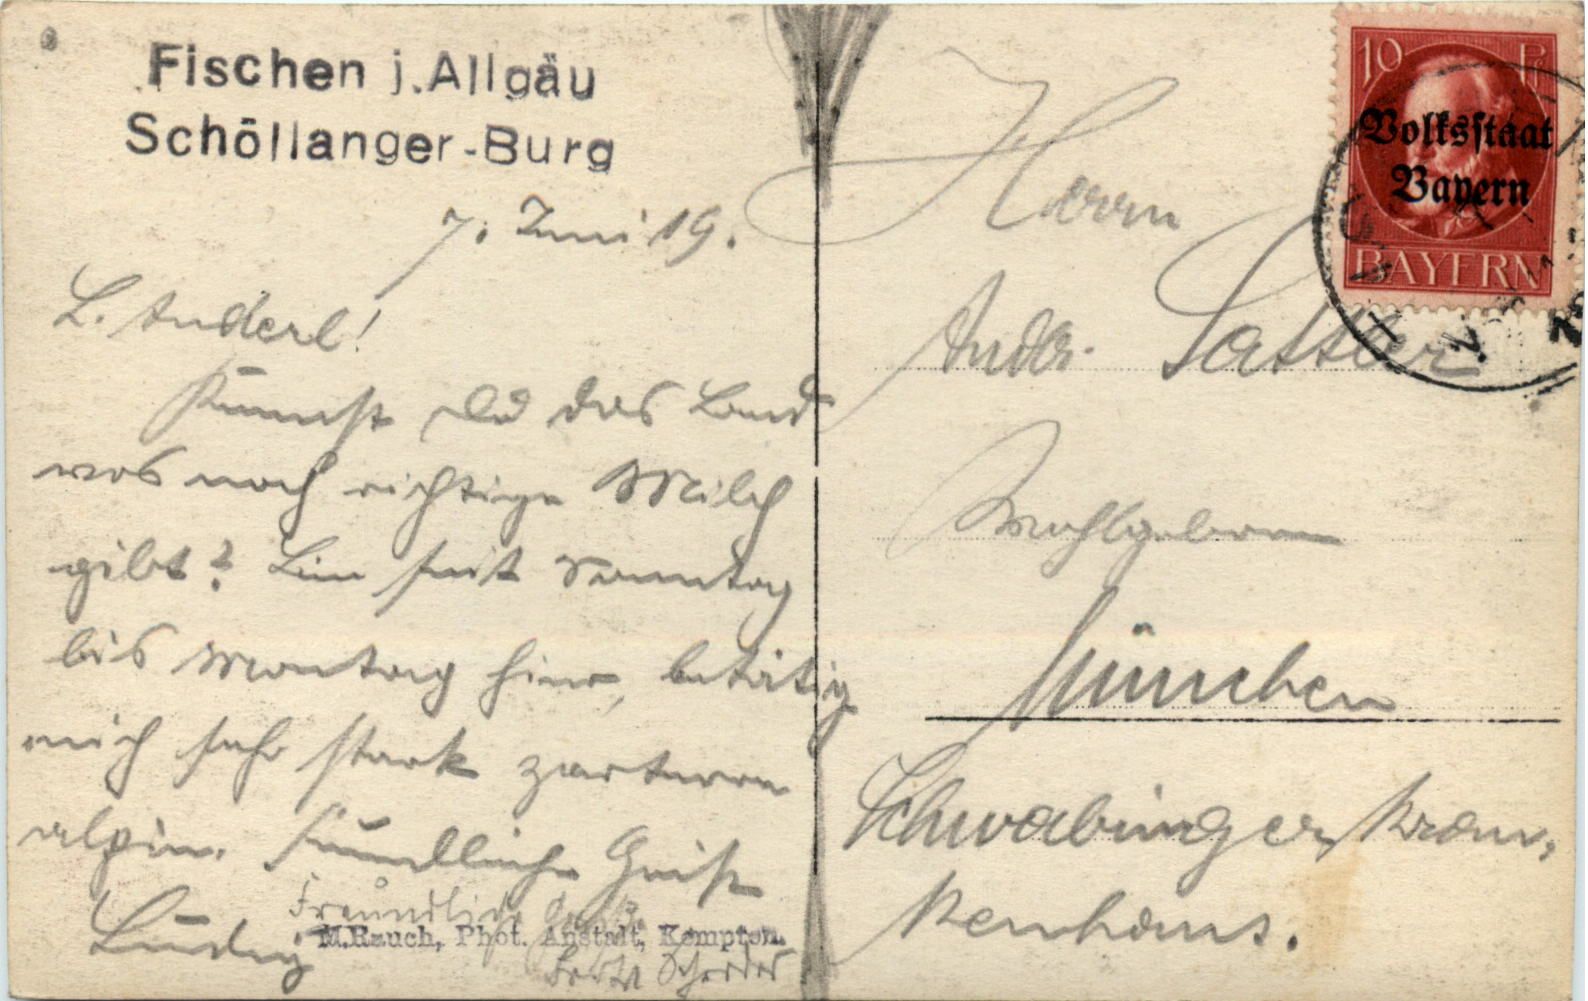 Fischen i. Allgäu
Schöllanger-Burg
7. Juni 19.
L. Anderl!
Kennst Du das Land
wo's noch richtige Milch
gibt? Bin seit Sonntag
bis Montag hier, betätig
mich sehr stark
alpin. Freundliche Grüße
Ludwig
Freundliche Grüße
M.Rauch, Phot. Anstalt, Kempten.
10 Pf
Volksstaat
Bayern
BAYERN
Herrn
Andr. Sattler
Wohlgeboren
München
Schwabinger Kran-
kenhaus.